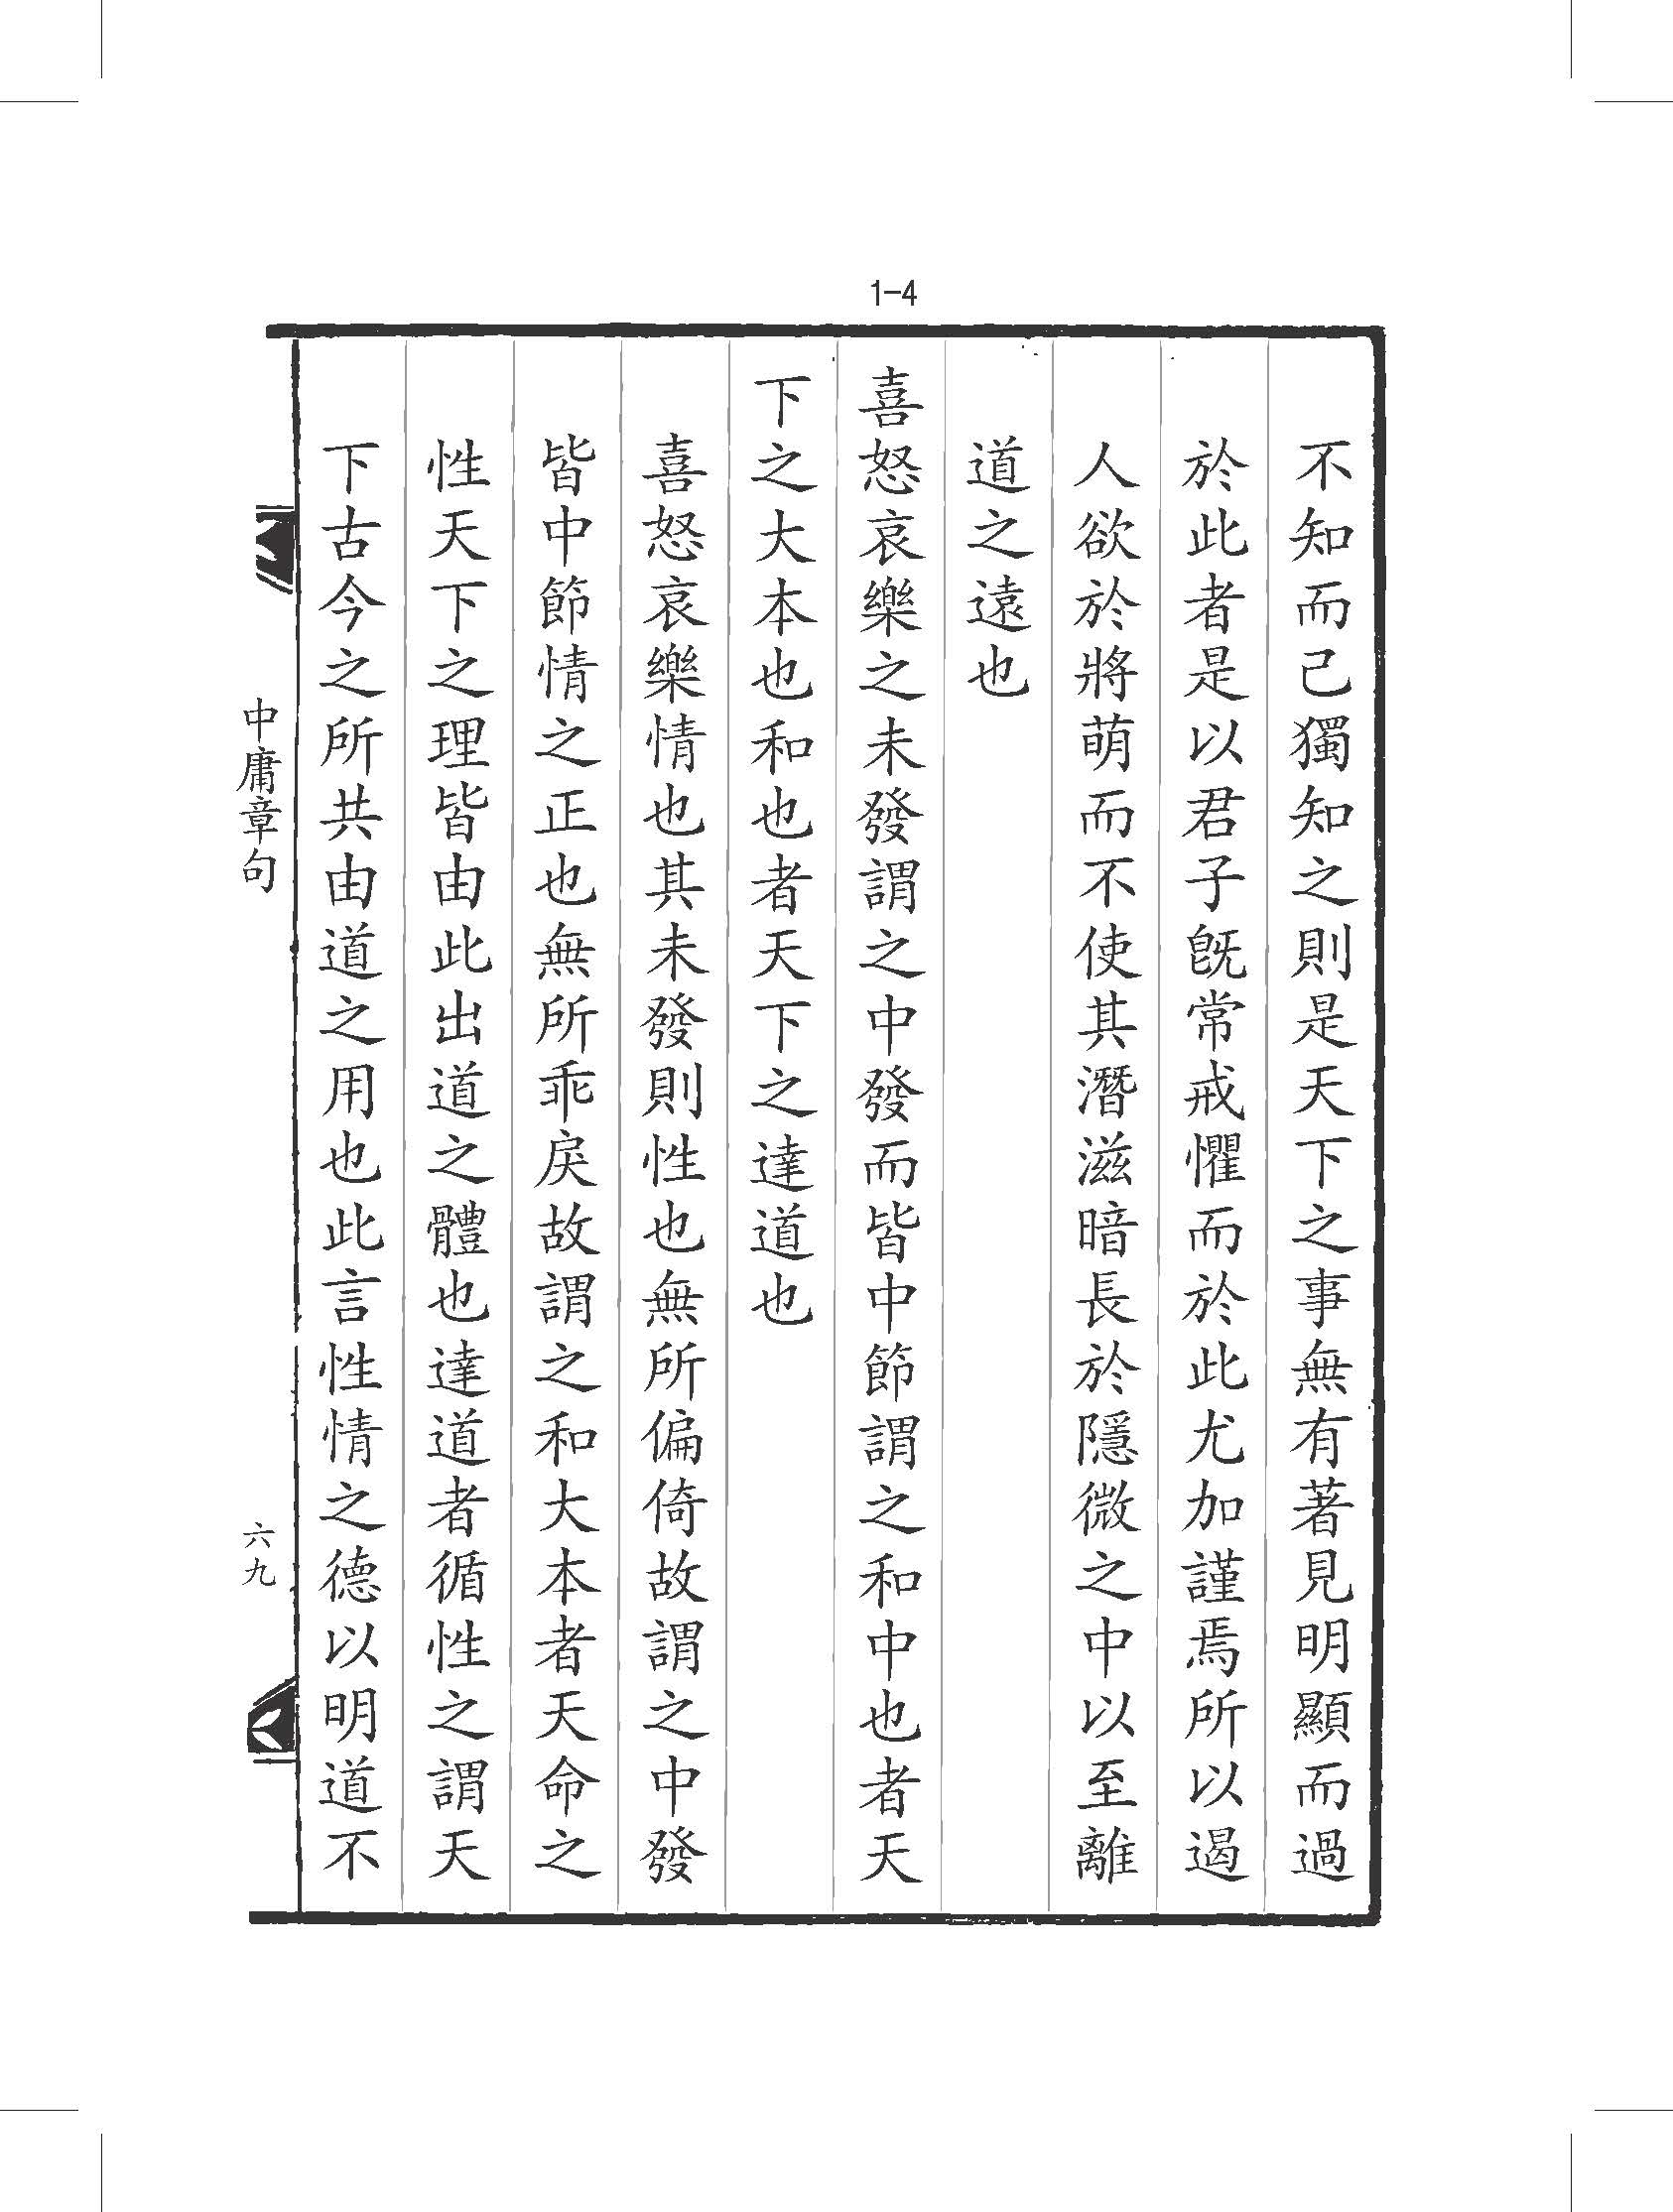 1-4
不知而己獨知之則是天下之事無有著見明顯而過
於此者是以君子旣常戒懼而於此尤加謹焉所以遏
人欲於將萌而不使其潛滋暗長於隱微之中以至離
道之遠也
喜怒哀樂之未發謂之中發而皆中節謂之和中也者天
下之大本也和也者天下之達道也
喜怒哀樂情也其未發則性也無所偏倚故謂之中發
皆中節情之正也無所乖戾故謂之和大本者天命之
性天下之理皆由此出道之體也達道者循性之謂天
下古今之所共由道之用也此言性情之德以明道不
中庸章句
六九